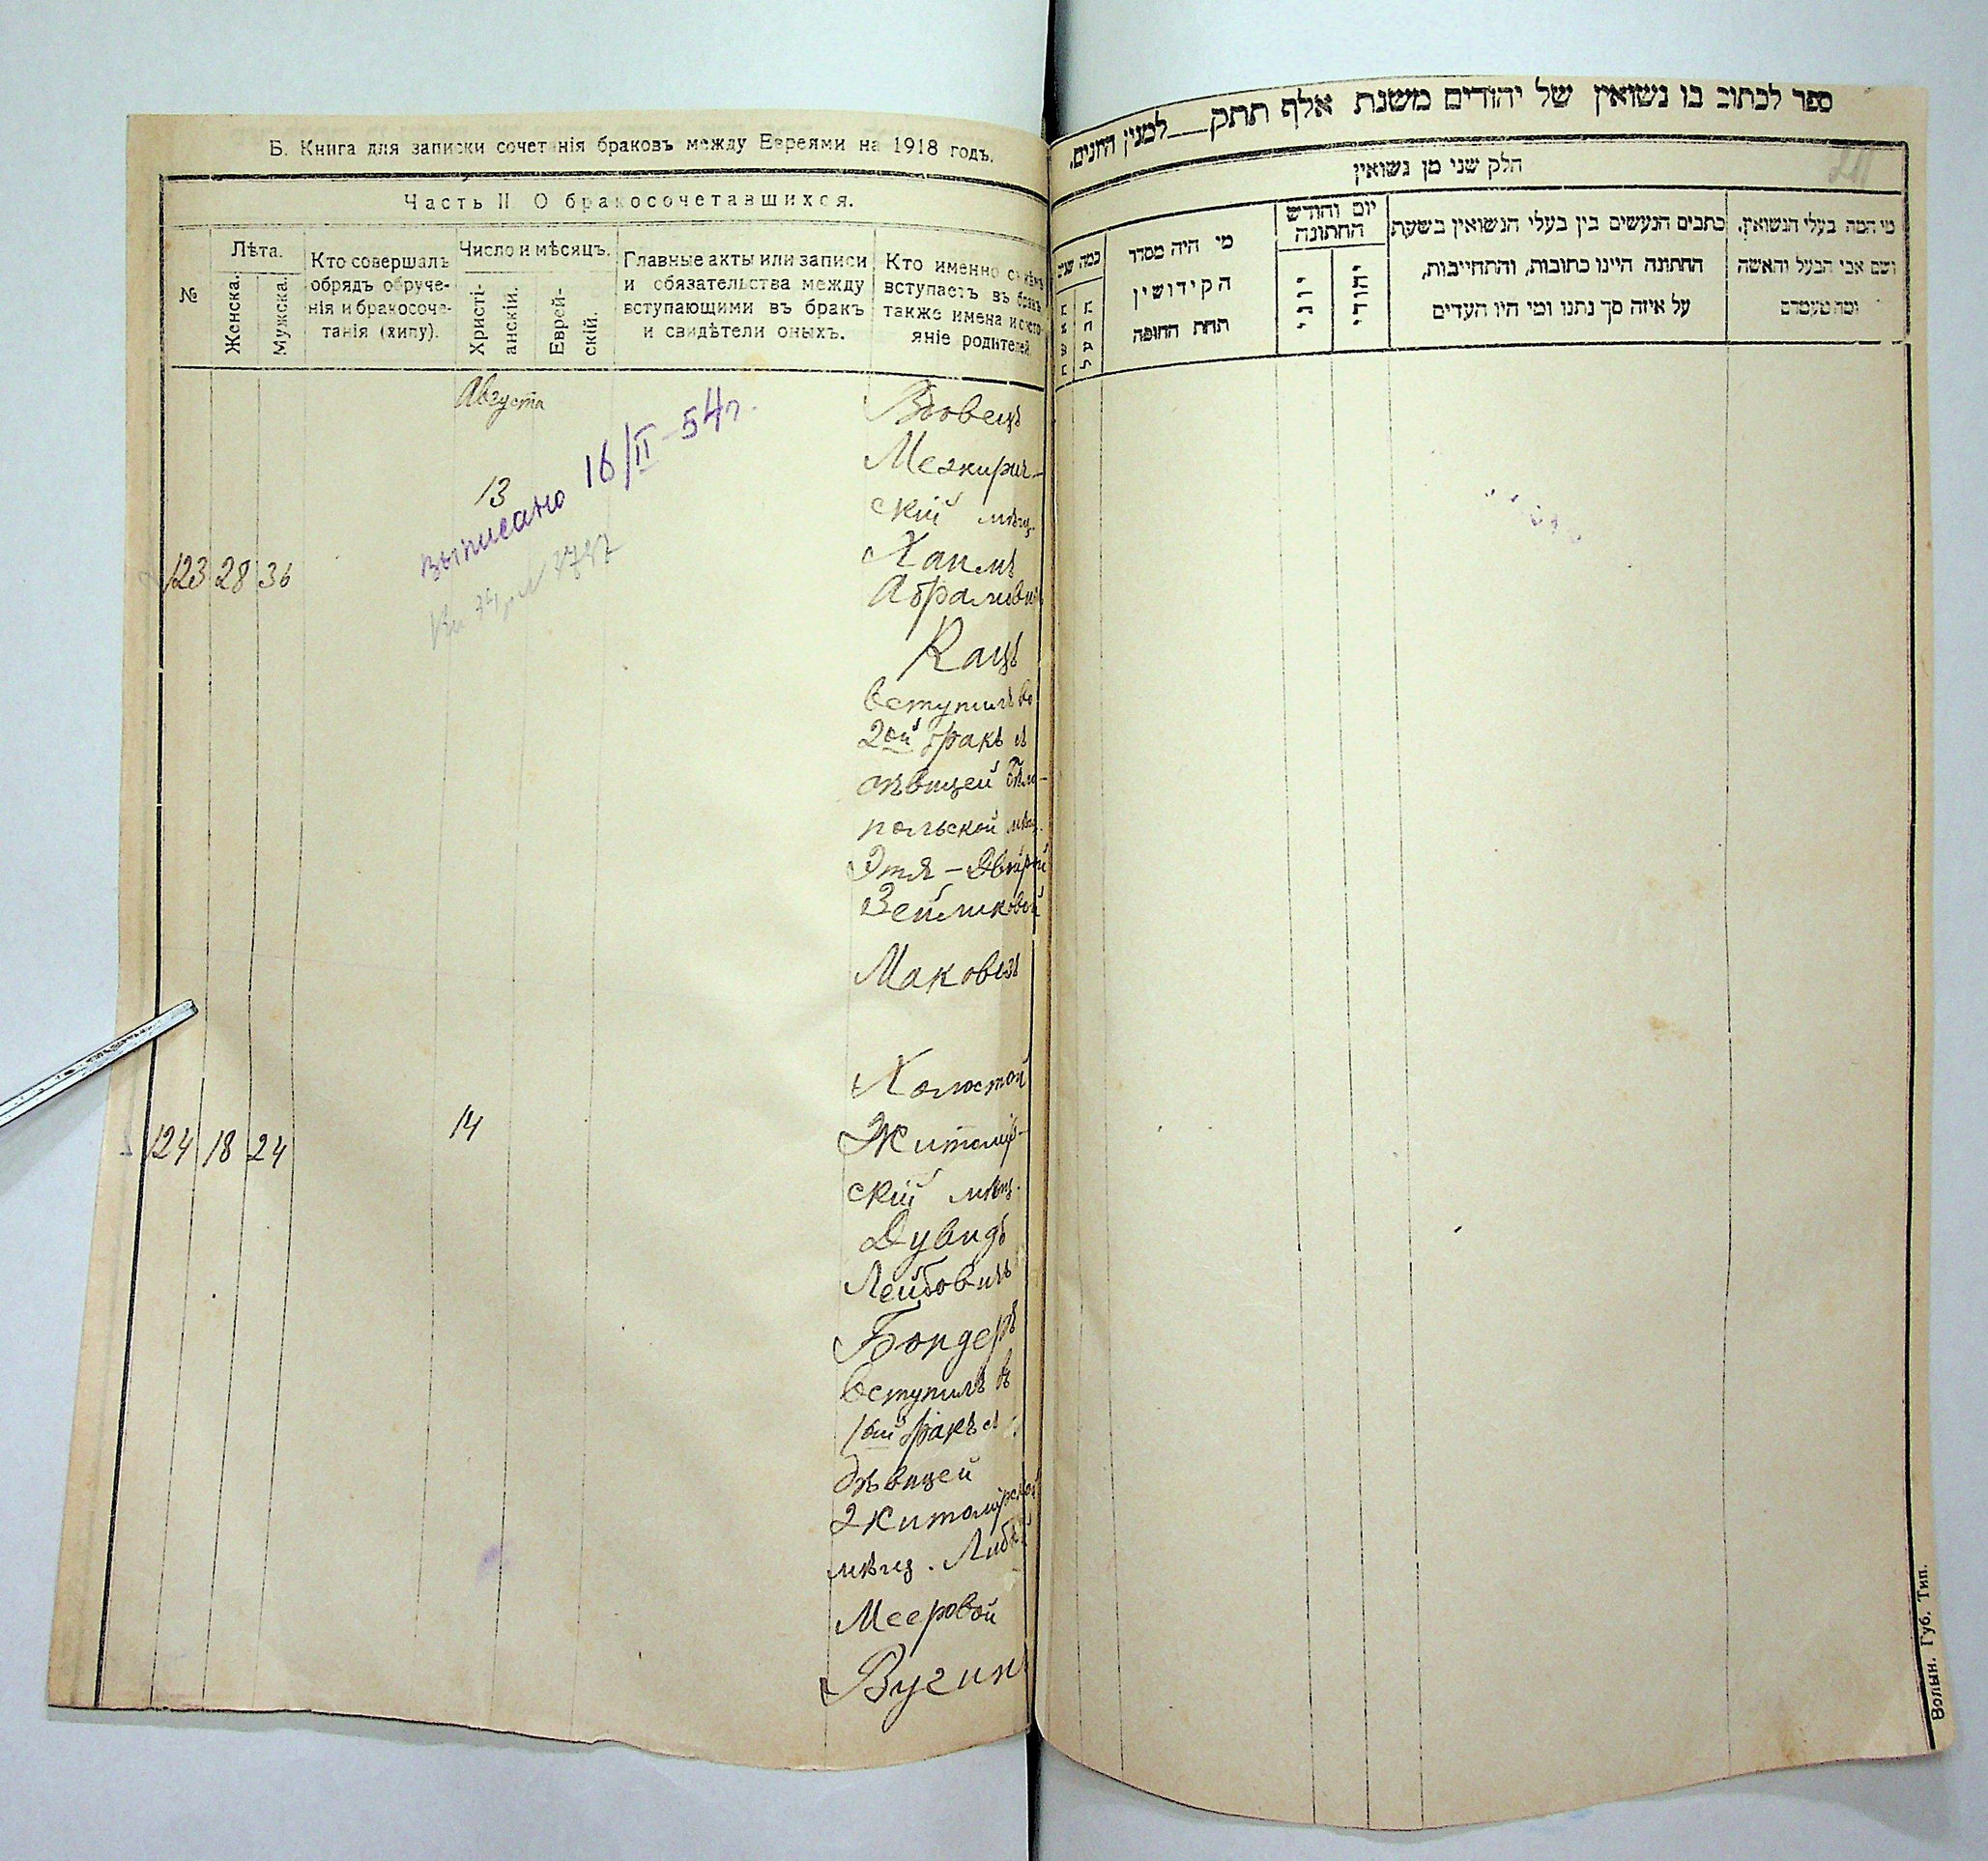 Б. Книга для записки сочетанія браковъ между Евреями на 1918 годъ.
Часть II. О бракосочетавшихся.
№
Лѣта.
Женска.
Мужска.
Кто совершалъ
обрядъ обруче-
нія и бракосоче-
танія (хипу).
Число и мѣсяцъ.
Христі-
анскіи.
Еврей-
скій.
Главные акты или записи
и обязательства между
вступающими въ бракъ
и свидѣтели оныхъ.
Кто именно съ кѣмъ
вступаетъ въ бракъ
также имена и состо-
яніе родителей.
Августа
13
выписано 16/II-54г.
123 28 36
Вдовецъ
Межирич-
скій мѣщ.
Хаимъ
Абрамовичъ
Кацъ
вступилъ во
2ой бракъ съ
дѣвицей
польской мѣщ.
Этля-Двойрой
Зейликовой
Маковъ
124 18 24
14
Холостой
Житомір-
скій мѣщ.
Дувидъ
Лейбовичъ
Бондеръ
вступилъ въ
1ый бракъ съ
дѣвицей
Житомірской
мѣщ.
Мееровой
Вугинъ
ספר לכתוב בו נשואין של יהודים משנת אלף תתק__למנין הזונים.
חלק שני מן נשואין
מי המה בעלי הנשואין,
ושם אבי הבעל והאשה
ומה מעמדם
כתבים הנעשים בין בעלי הנשואין בשעת
החתונה היינו כתובות, והתחייבות,
על איזה סך נתנו ומי היו העדים
יום והודש
החתונה
יהודי
יוני
מי היה מסדר
הקידושין
תחת החופה
כמה שנים
Волын. Губ. Тип.